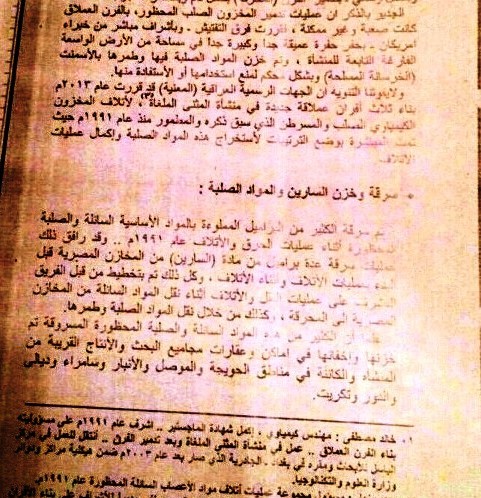 الجدير بالذكر ان عمليات تدمير المخزون الصلب المحظور، بالفرن العملاق
كانت صعبة وغير ممكنة ، لقررت فرق التفتيش . وبأشراف مباشر من خبراء
امريكان .. بحفر حفرة عميقة جداً وكبيرة جداً في مساحة من الأرض الواسعة
الفارغة التابعة للمنشأة ، وتم خزن المواد الصلبة فيها وطمرها بالأسمنت
(الخرسانة المسلحة) وبشكل محكم لمنع استخدامها أو الأستفادة منها.
ولايفوتنا التنويه ان الجهات الرسمية العراقية (المعنية) قد قررت عام ٢٠١٣م
بناء ثلاث أفران عملاقة جديدة في منشأة المثنى الملغاة ، لأتلاف المخزون
الكيمياوي الصلب والمسرطن الذي سبق ذكره والمطمور منذ عام ١٩٩١م حيث
تمت المباشرة بوضع الترتيبات لأستخراج هذه المواد الصلبة واكمال عمليات
الأتلاف.
• سرقة وخزن السارين والمواد الصلبة :
تم سرقة الكثير من البراميل المملوءة بالمواد الأساسية السائلة والصلبة
المحظورة أثناء عمليات الحرق والأتلاف عام ١٩٩١م .. وقد رافق ذلك
عمليات سرقة عدة براميل من مادة (السارين) من المخازن المصرية قبل
البدء بعمليات الأتلاف وأثناء الأتلاف ، وكل ذلك تم بتخطيط من قبل الفريق
المشرف على عمليات النقل والأتلاف أثناء نقل المواد السائلة من المخازن
المصرية الى المحرقة ، وكذلك من خلال نقل المواد الصلبة وطمرها.
الكثير من هذه المواد السائلة والصلبة المحظورة المسروقة تم
خزنها وإخفائها في اماكن وعقارات مجاميع البحث والأنتاج القريبة من
المنشأة والكائنة في مناطق الحويجة والموصل والأنبار وسامراء وديالى
والدور وتكريت.
٠١ خالد مصطفى : مهندس كيمياوي . اكمل شهادة الماجستير .. اشرف عام ١٩٩١م على مسؤوليته
بناء الفرن العملاق .. عمل في منشأة المثنى الملغاة وبعد تدمير الفرن .. انتقل للعمل في مركز
للأبحاث ومقره في بغداد - الجادرية الذي صار بعد عام ٢٠٠٣م ضمن هيكلية مراكز
وزارة العلوم والتكنولوجيا.
مجموعة عمليات أتلاف مواد الأعصاب السائلة المحظورة عام ١٩٩١م.